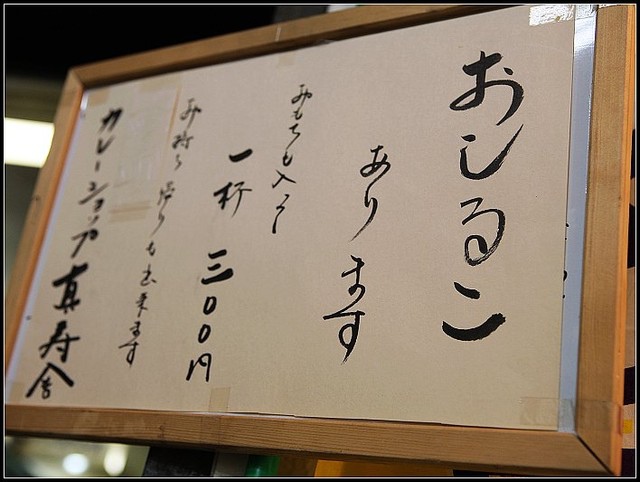 おしるこ
あります
おもちも入って
一杯 三〇〇円
お持ち帰りも出来ます
カレーショップ 真寿舎